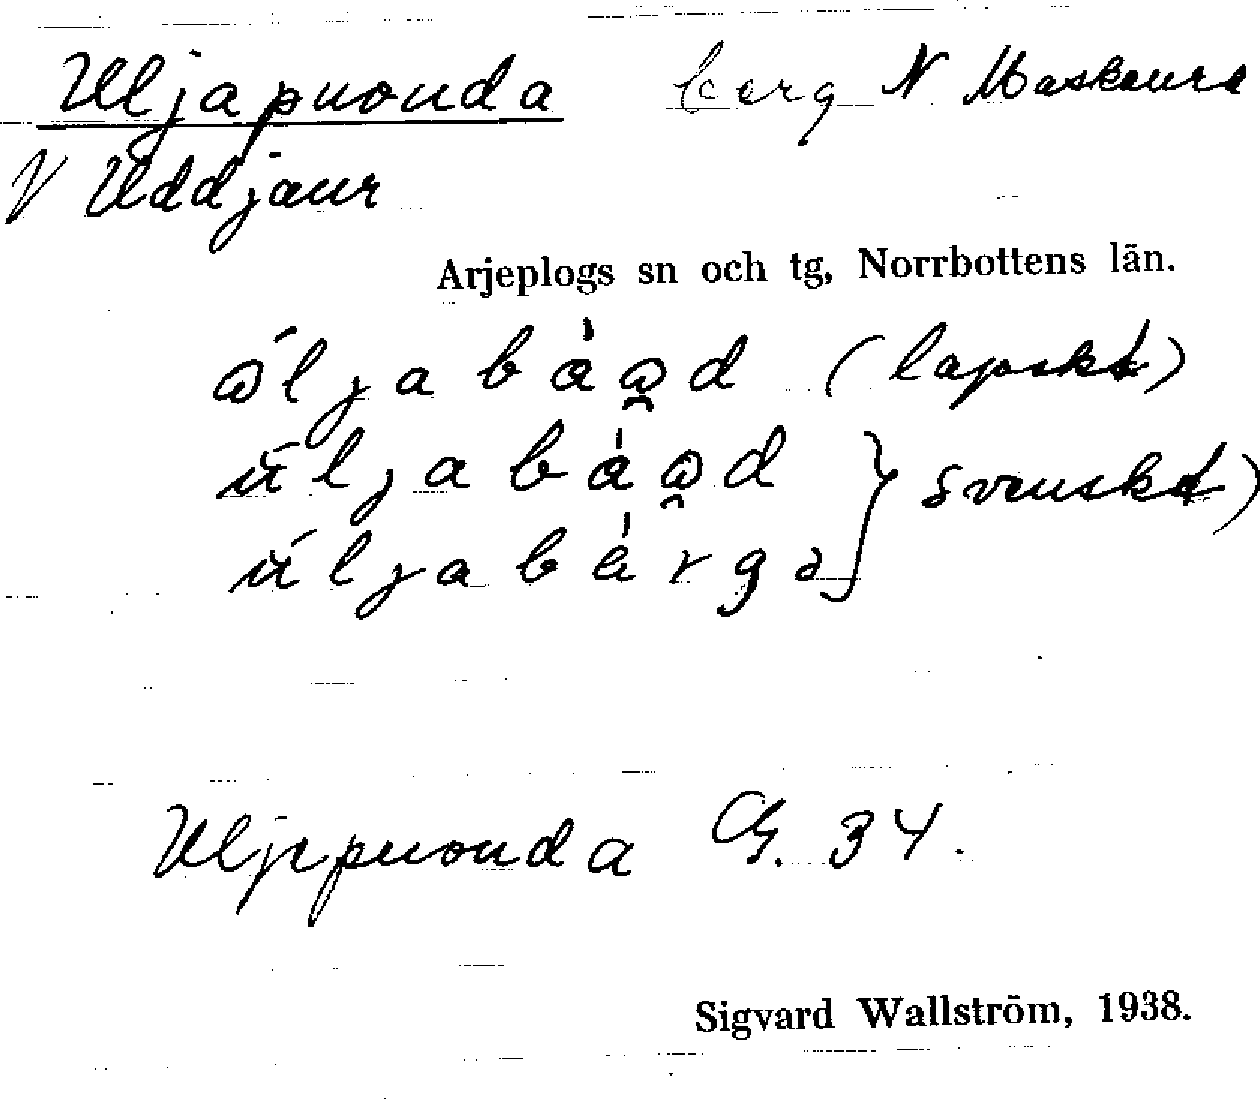 Uljapuouda berg N. Maskaure
V Uddjaur
Arjeplogs sn och tg, Norrbottens län.
(lapskt)
svenskt)
Uljepuouda G. 34.
Sigvard Wallström, 1938.